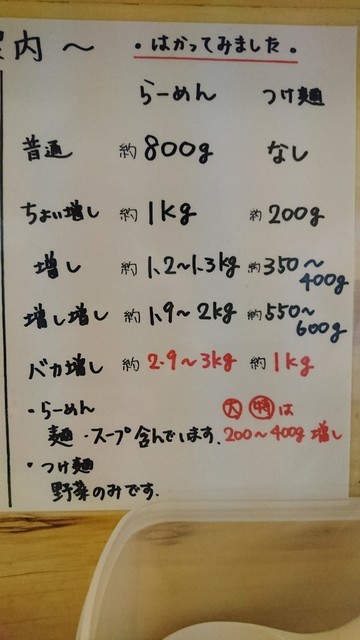 内～ ・はかってみました。
らーめん つけ麺
普通 約800g なし
ちょい増し 約1kg 約200g
増し 約1.2～1.3kg 約350～400g
増し増し 約1.9～2kg 約550～600g
バカ増し 約2.9～3kg 約1kg
・らーめん 大 特は
麺・スープ含んでいます。 200～400g増し
・つけ麺
野菜のみです。